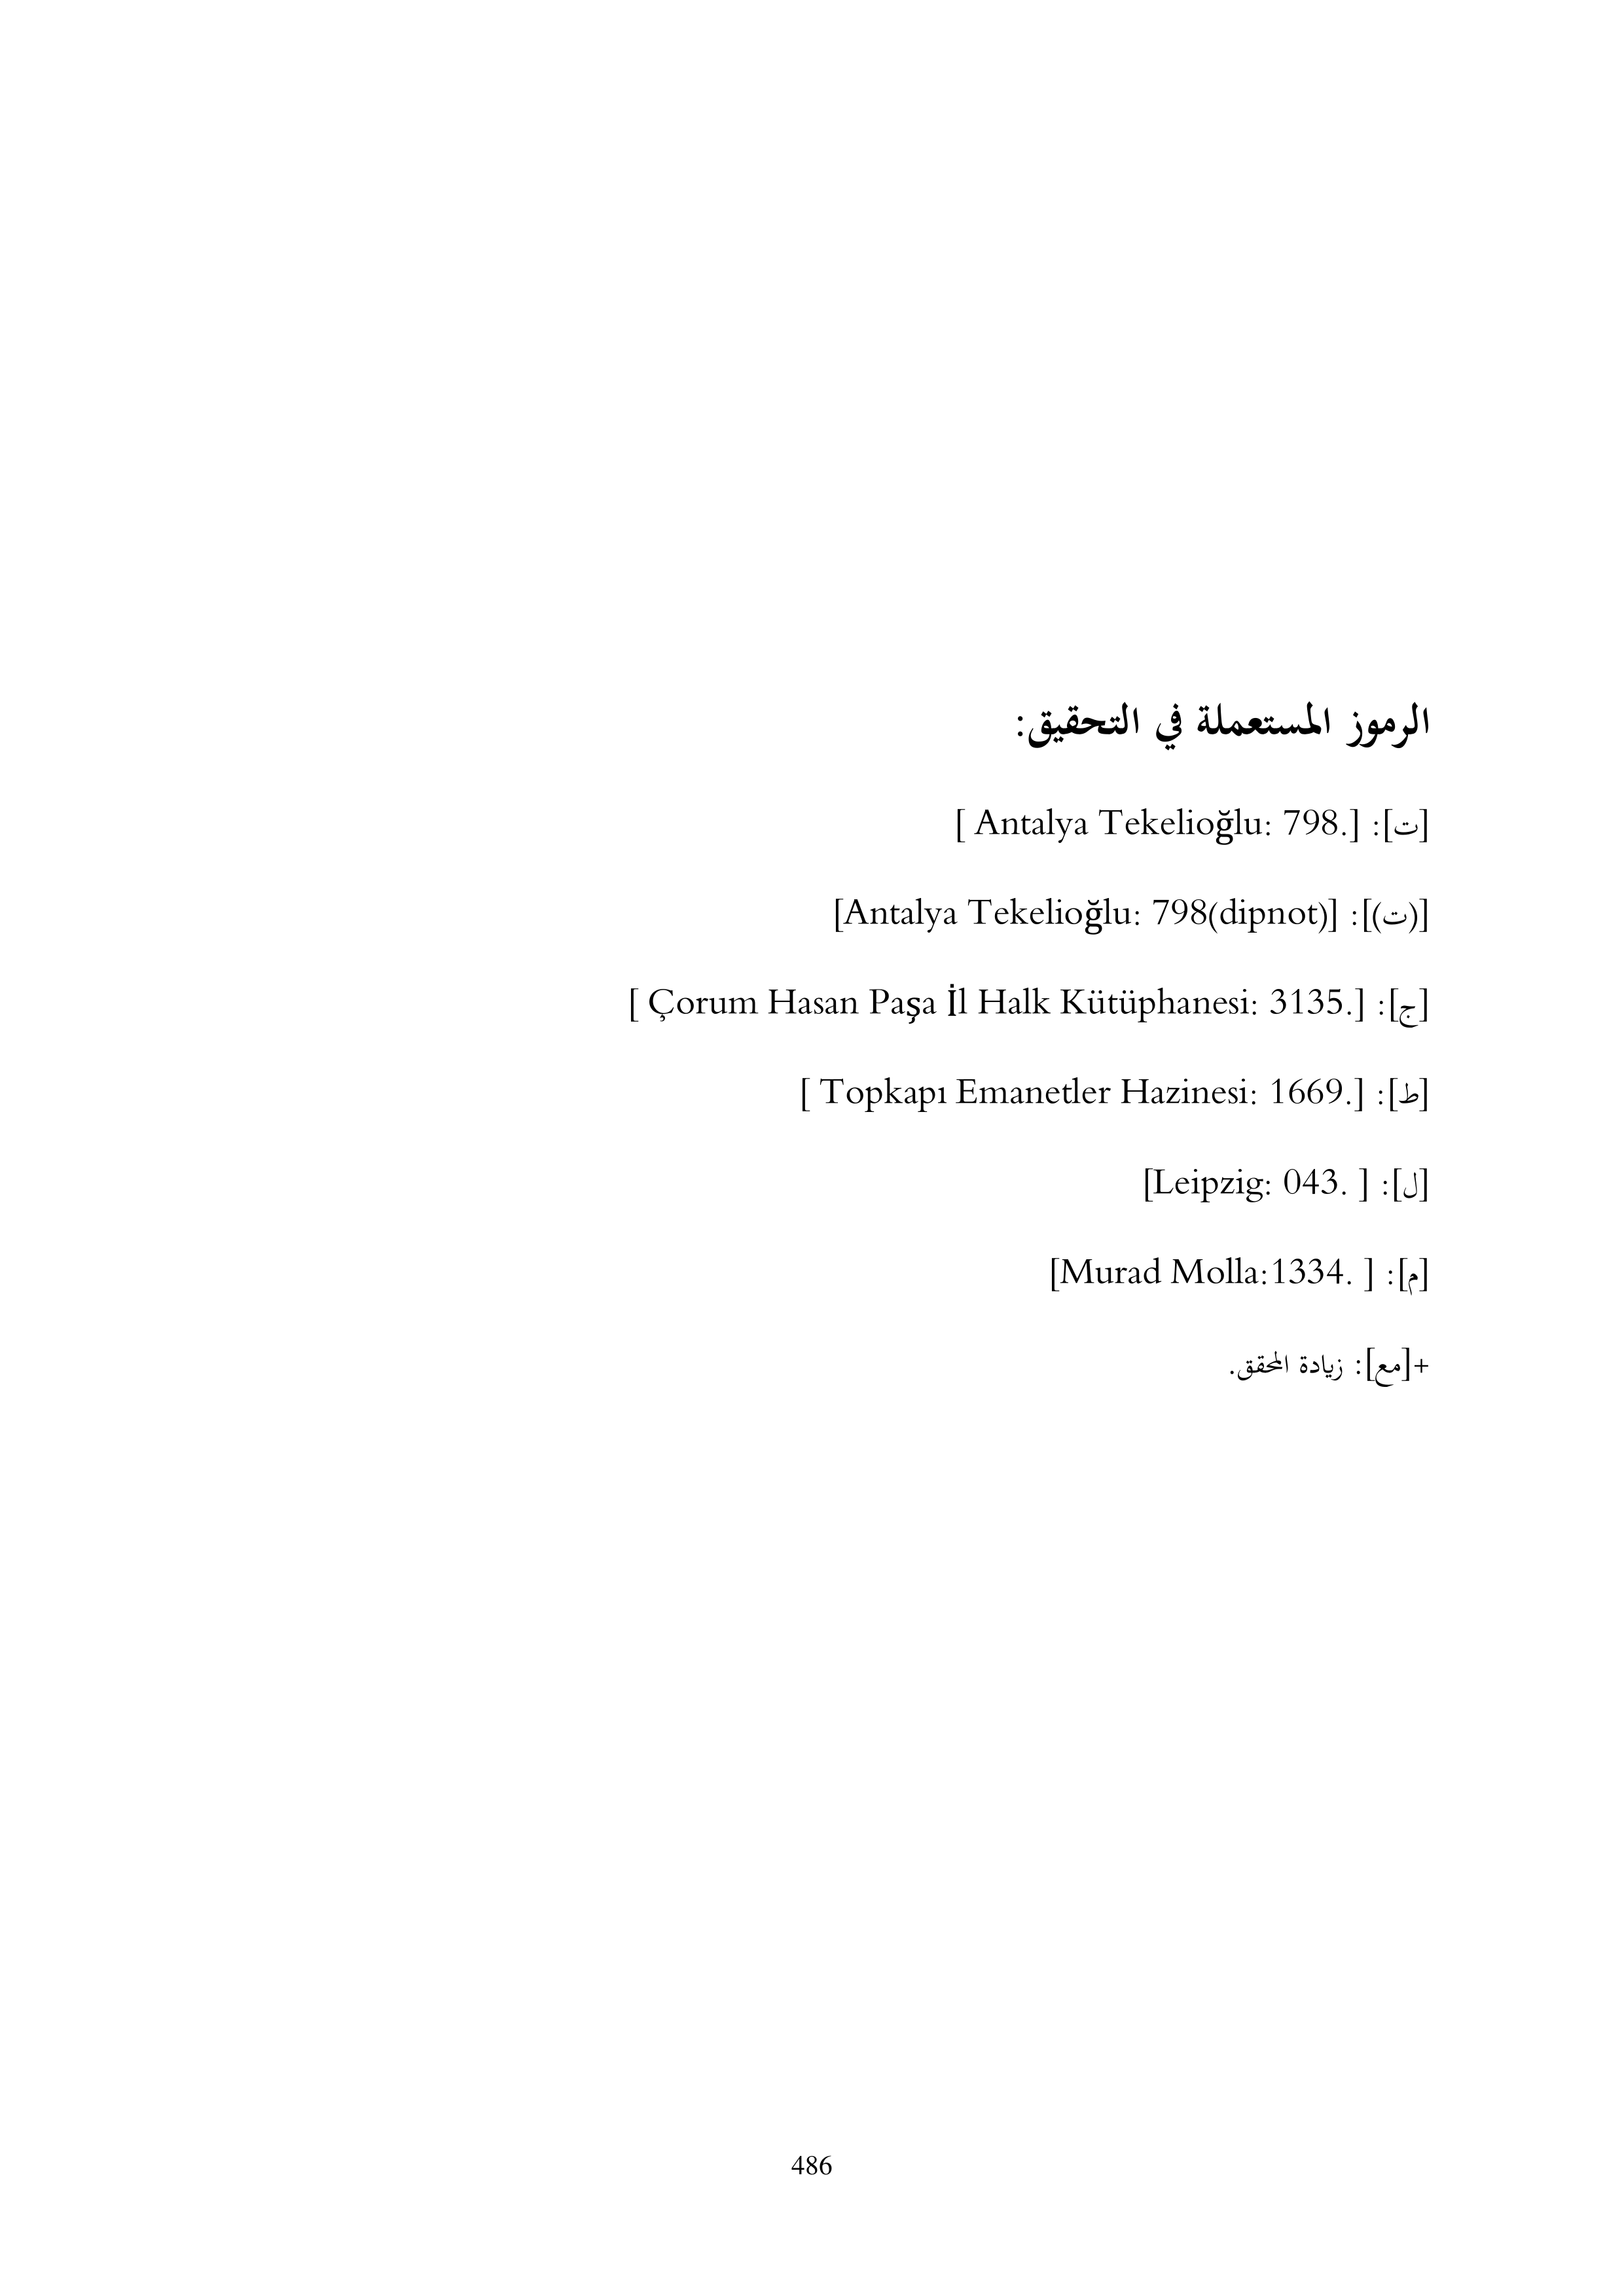 الرموز المستعملة في التحقيق:
[ت]: [Antalya Tekelioğlu: 798. ]
[(ت)]: [Antalya Tekelioğlu: 798(dipnot)]
[ج]: [Çorum Hasan Paşa İl Halk Kütüphanesi: 3135. ]
[ط]: [Topkapı Emanetler Hazinesi: 1669. ]
[ل]: [ Leipzig: 043.]
[م]: [ Murad Molla:1334.]
+[مع]: زيادة المحقق.
486